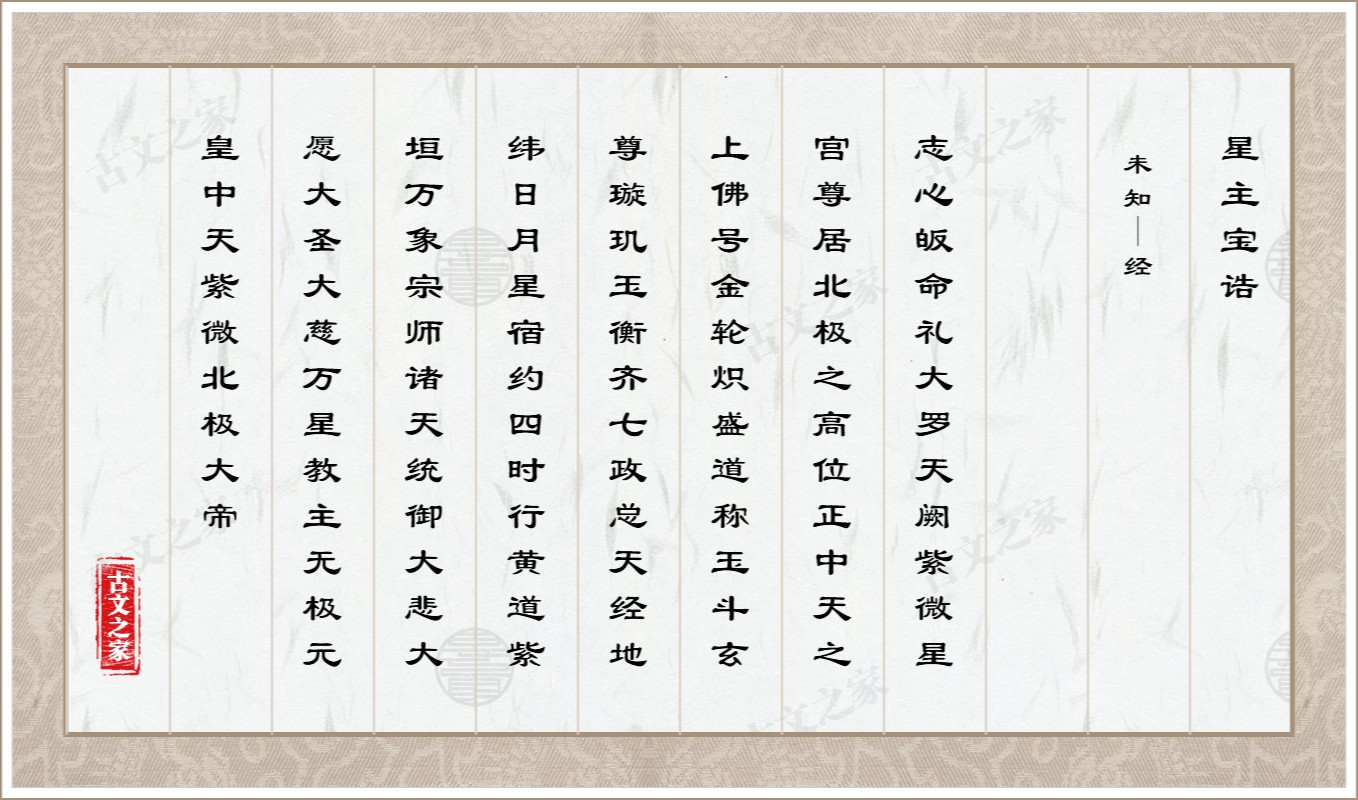 星主宝诰
未知｜经
志心皈命礼大罗天阙紫微星
宫尊居北极之高位正中天之
上佛号金轮炽盛道称玉斗玄
尊璇玑玉衡齐七政总天经地
纬日月星宿约四时行黄道紫
垣万象宗师诸天统御大悲大
愿大圣大慈万星教主无极元
皇中天紫微北极大帝
古文之家
古文之家
古文之家
古文之家
古文之家
古文之家
古文之家